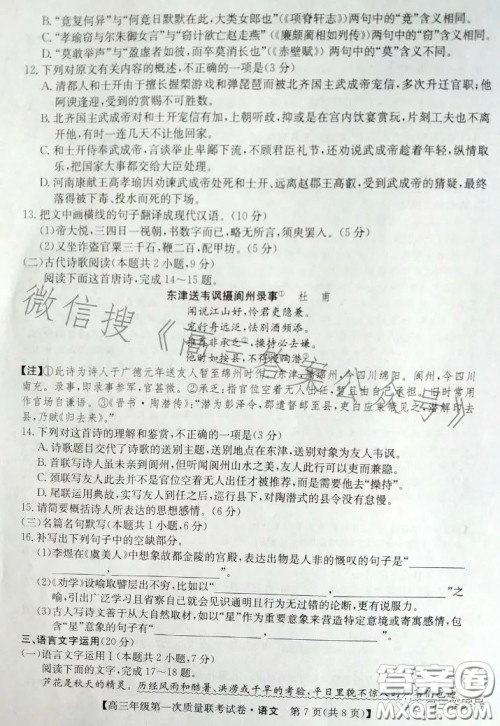 B.“竟复何异”与“何竟日默默在此,大类女郎也”(《项脊轩志》)两句中的“竟”含义相同。
C.“孝瑜窃与尔朱御女言”与“窃计欲亡赵走燕”(《廉颇蔺相如列传》)两句中的“窃”含义相同。
D.“莫敢举声”与“盈虚者如彼,而卒莫消长也”(《赤壁赋》)两句中的“莫”含义不同。
12.下列对原文有关内容的概述,不正确的一项是(3分)
A.清都人和士开由于擅长握槊游戏和弹琵琶而被北齐国主武成帝宠信,多次升迁官职;他
阿谀逢迎,受到武成帝的喜爱。
B.北齐国主武成帝宠信和士开有加,上朝听政,抑或是在宫内饮宴赏玩,片刻工夫也不离
开他,有时一年几天不让他回家。
C.和士开侍奉武成帝,言谈举止卑鄙下流,不顾君臣礼节,还劝说武成帝及时行乐,纵情享
乐,把国家大事都交给大臣处理。
D.河南康献王高孝瑜因劝谏武成帝处处远离和士开,远离赵郡王高睿,而被诬陷,最终落
得投水而死的下场。
13.把文中画横线的句子翻译成现代汉语。(10分)
(1)帝大悦,三四日一视朝,书数字而已,略无所言,须臾罢入。(3分)
(2)又坐诈盗官粟三千石,鞭二百,配甲坊。(5分)
(二)古代诗歌阅读(本题共2小题,9分)
阅读下面这首唐诗,完成14～15题。
东津送韦讽摄阆州录事① 杜 甫
闻说江山好,怜君吏隐兼。
宠行舟远泛,怯别酒频添。
推荐非承乏②,操持必去嫌。
他时如按县,不得慢陶潜③。
[注]①此诗为诗人于广德元年送友人暂至绵州时作,东津,今四川绵阳。阆州,今四川
南充。录事,即录事参军,官甚微。②承乏:指官位空着无人,只好由自己充任。此处指时常用
作官场自谦语。③《晋书·陶潜传》:“潜为彭泽令,郡遣督邮至县,吏白应束带见之,潜叹曰……解印去
县,乃赋《归去来》。”
14.下列对这首诗的理解和鉴赏,不正确的一项是(3分)
A.诗歌题目交代了诗歌的送别主题,送别地点在东津,送别对象为友人韦讽。
B.首联写诗人虽未亲到阆州,但听闻阆州山水之美,友人此行为吏,可谓吏隐兼得。
C.颔联写诗人为表达对友人的尊宠而送之甚远,因内心惧怕离别而频频添酒。
D.尾联运用典故,实写友人到任后,巡行县下,对陶潜式的县令没有怠慢。
15.请简要概括诗人所表达的思想感情。(6分)
(三)名篇名句默写(本题共1小题,6分)
16.补写出下列句子中的空缺部分。
(1)李煜在《虞美人》中想象故都金陵的宫殿,表达出物是人非的慨叹的句子是“
,
”。
(2)《劝学》设喻取譬层出不穷,如以“
,
”为
喻,引出广泛学习且省察自己就会见识通明且行为无过错的论断,更有说服力。
(3)古人写诗文善于从大自然取材,如以“星”作为重要意象来营造特定意境或情感,包
含“星”意象的句子有“
,
”。
三、语言文字运用(20分)
(一)语言文字运用Ⅰ(本题共2小题,7分)
阅读下面的文字,完成17～18题。
芦花是秋天的精灵。历经风雨和酷暑、洪涝或干旱的考验,平日里貌不惊人的
【高三年级第一次质量联考试卷·语文 第7页(共8页)】
微信搜《高三答案公众号》
答案圈
MXQE.COM